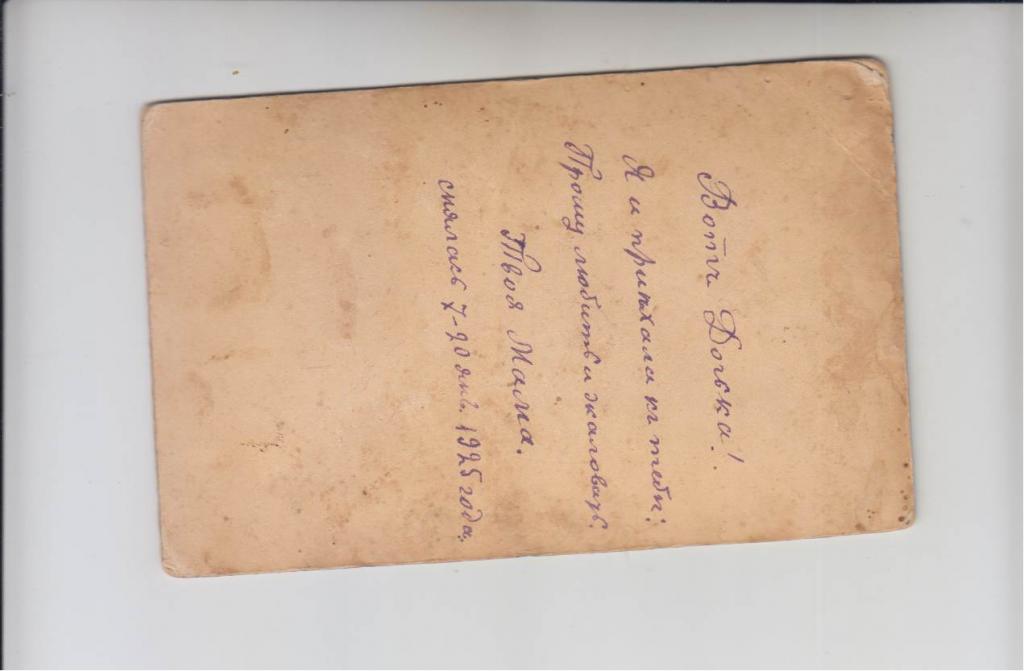 Вотъ Дочька!
Я и приѣхала къ тебѣ;
Прошу любить и жаловать.
Твоя Мама.
снялась 7-20 янв. 1925 года.